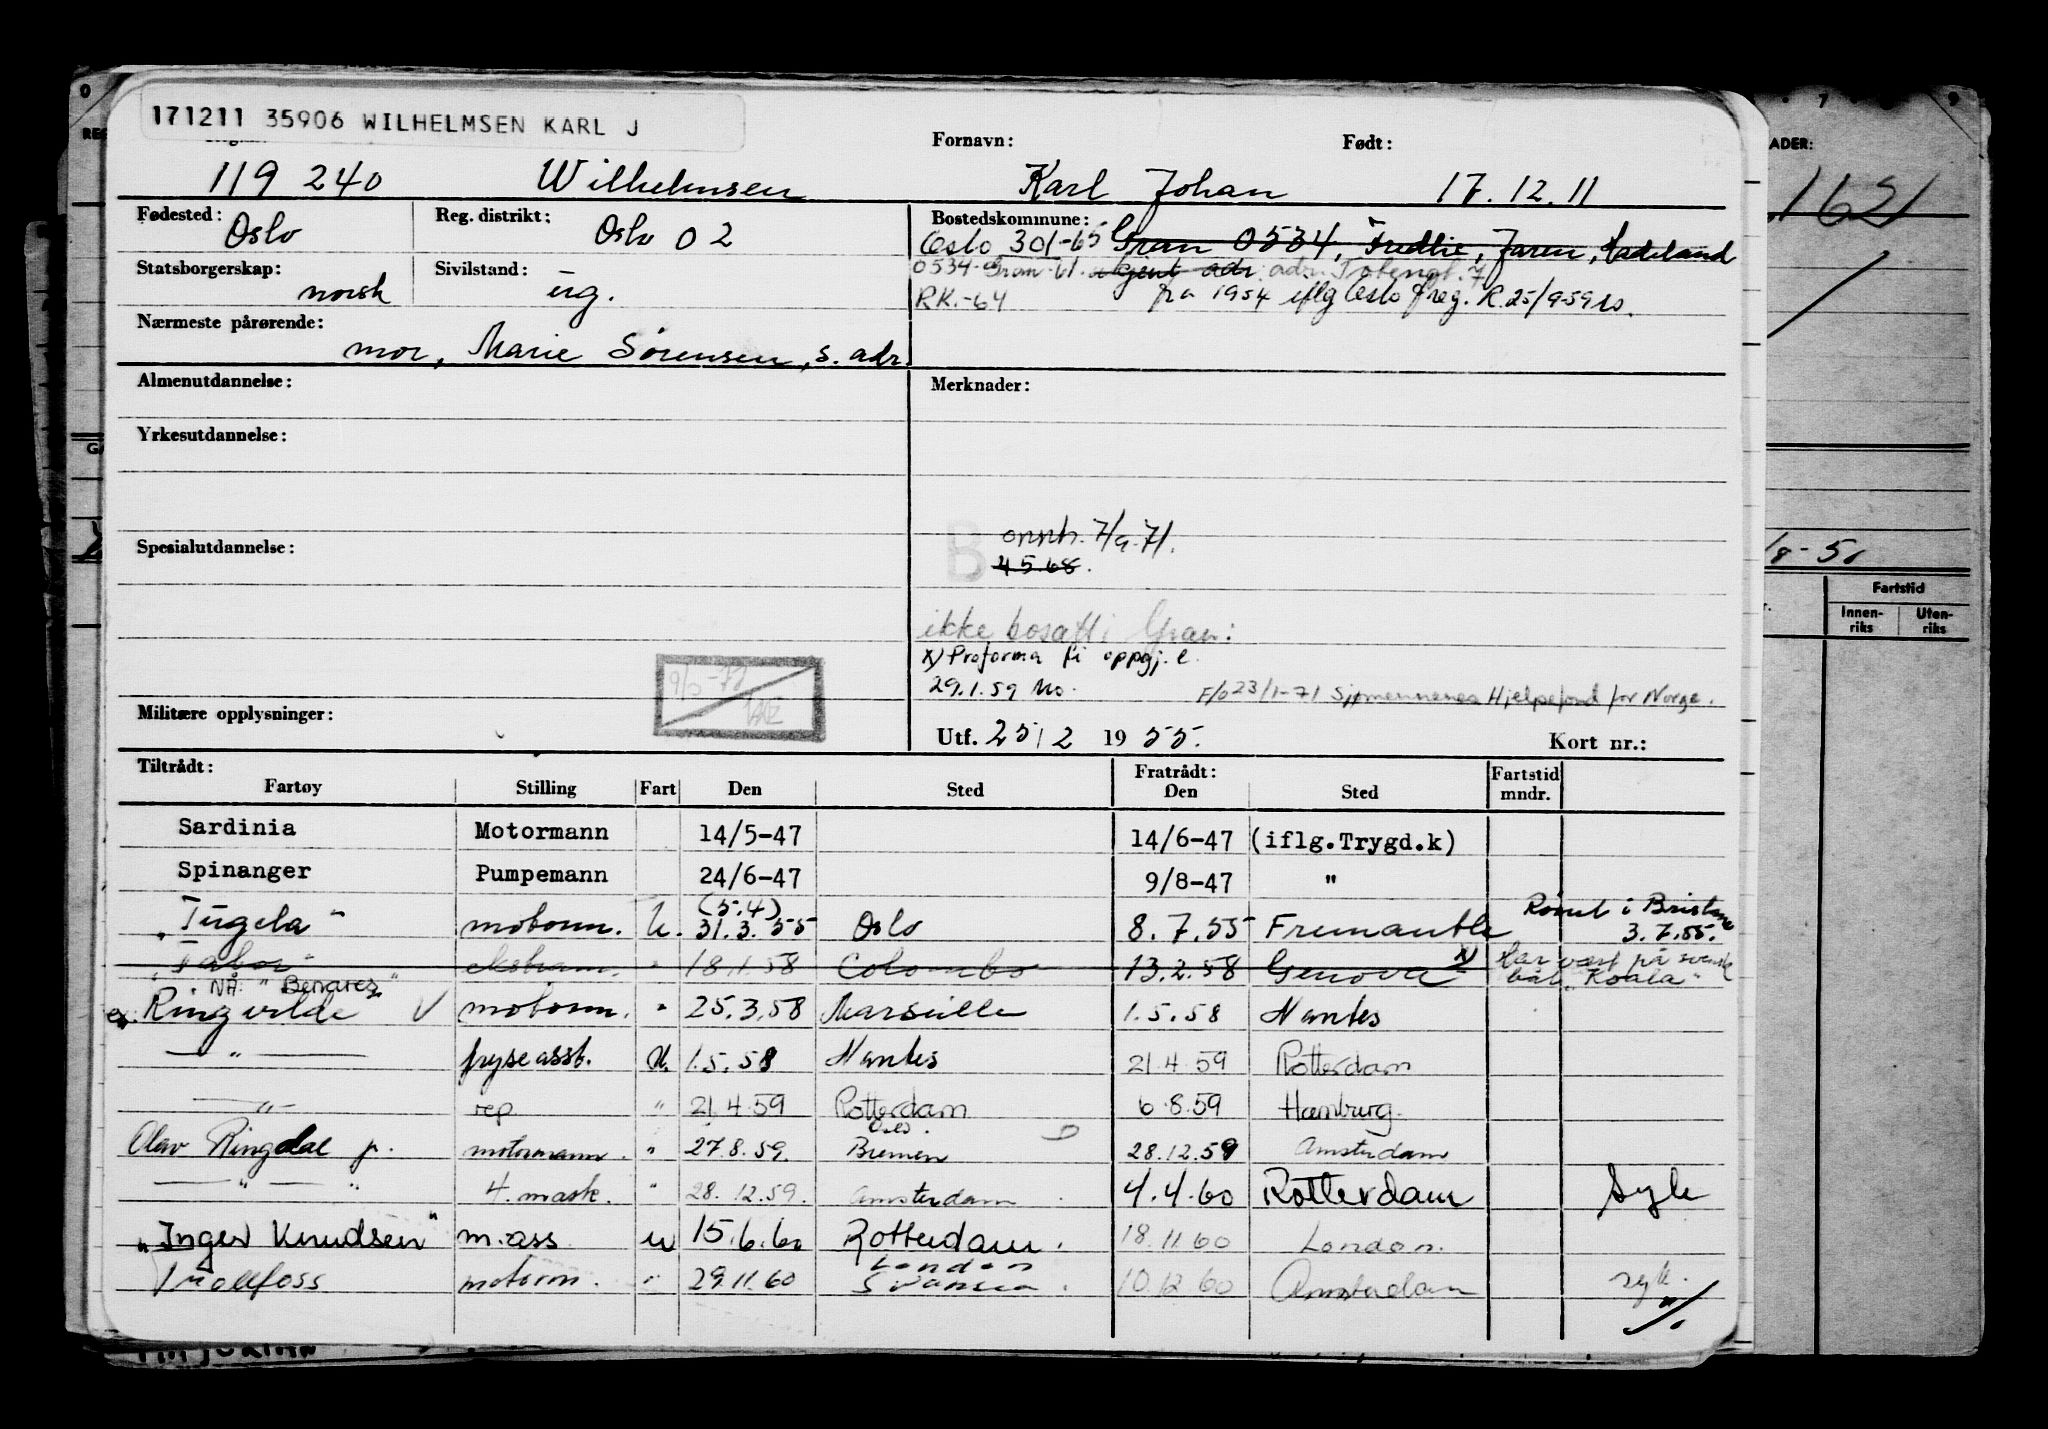 171211 35906 WILHELMSEN KARL J
Fornavn: Født:
119 240 Wilhelmsen Karl Johan 17.12.11
Fødested: Oslo Reg. distrikt: Oslo 02 Bostedskommune:
Oslo 301-65 Gran 0534, Fredlie, Jaren, Hadeland
Statsborgerskap: norsk Sivilstand: ug.
0534 Gran-61. adr.
RK.-64 fra 1954 iflg Oslo freg. R.25/9-59
Nærmeste pårørende:
mor, Marie Sörensen, s. adr.
Almenutdannelse: Merknader:
Yrkesutdannelse:
B omnb. 7/9-71.
Spesialutdannelse:
4.5.68.
ikke bosatt i Gran:
x) Proforma fi oppgj. e.
29.1.59 Mo.
9/5-78
F/o 23/1-71 Sjømennenes Hjelpefond for Norge.
Militære opplysninger:
Utf. 25/2 1955. Kort nr.:
Tiltrådt: Fratrådt: Fartstid
Fartøy Stilling Fart Den Sted Den Sted mndr.
Sardinia Motormann 14/5-47 14/6-47 (iflg.Trygd.k)
Spinanger Pumpemann 24/6-47 9/8-47 "
(5.4) Rømt i
"Tugela" motorm. U. 31.3.55 Oslo 8.7.55 Fremantle 3.7.55.
"Tabor" ekstram. " 18.1.58 Colombo 13.2.58 Genova x) har vært på svensk
båt "Koala"
NÅ: "Benares"
ex. Ringvilde V motorm. " 25.3.58 Marseille 1.5.58 Nantes
— " — fryseasst. U. 1.5.58 Nantes 21.4.59 Rotterdam
— " — rep " 21.4.59 Rotterdam 6.8.59 Hamburg.
Oslo.
Olav Ringdal jr. motormann. " 27.8.59. Bremen 28.12.59 Amsterdam
— " — " 4. mask. " 28.12.59. Amsterdam 4.4.60 Rotterdam Syk
"Inger Knudsen" m.ass u 15.6.60 Rotterdam. 18.11.60 London.
London
Trollfoss motorm. " 29.11.60 Svansea. 10.12.60 Amsterdam syk.
0 7 9
ADER:
162
/8-51
Fartstid
Innen-riks Uten-riks